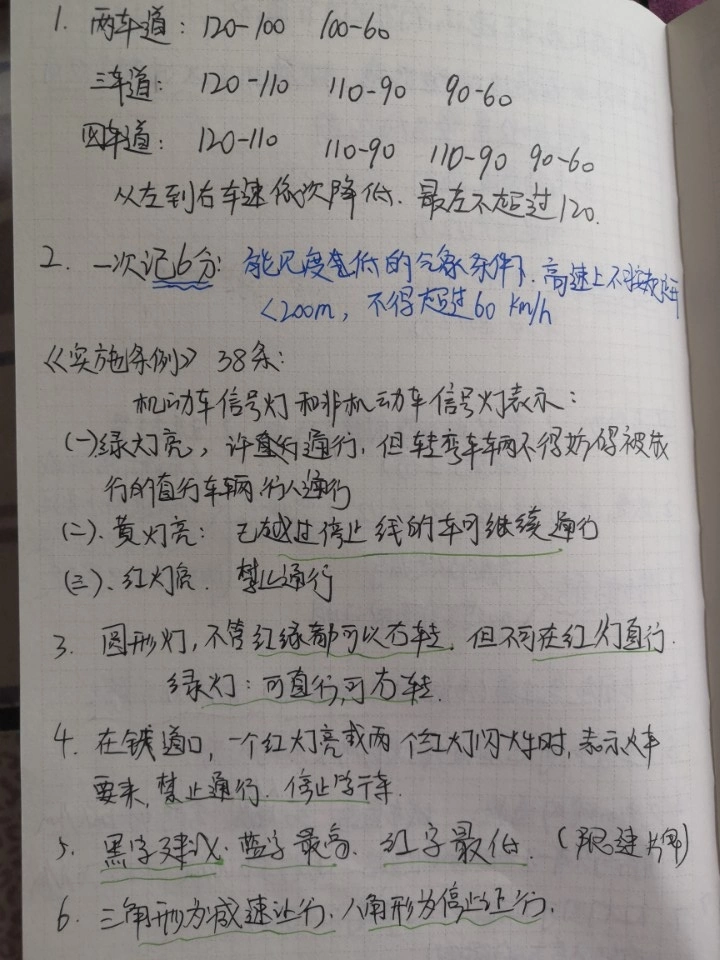 1. 两车道: 120-100 100-60
三车道: 120-110 110-90 90-60
四车道: 120-110 110-90 110-90 90-60
从左到右车速依次降低. 最左不超过120.
2. 一次记6分: 能见度低的气象条件下. 高速上不按规定
<200m, 不得超过60 Km/h
《实施条例》 38条:
机动车信号灯和非机动车信号灯表示:
(一)绿灯亮, 许通行, 但转弯车辆不得妨碍被放
行的直行车辆.行人通行
(二). 黄灯亮: 已越过停止线的车可继续通行
(三). 红灯亮. 禁止通行
3. 圆形灯, 不管红绿都可以右转. 但不可在红灯直行.
绿灯: 可直行,可右转.
4. 在铁道口, 一个红灯亮或两个红灯闪烁时, 表示火车
要来, 禁止通行. 停止等待.
5. 黑字建议. 蓝字最高. 红字最低. (限速牌)
6. 三角形为减速让行. 八角形为停止让行.